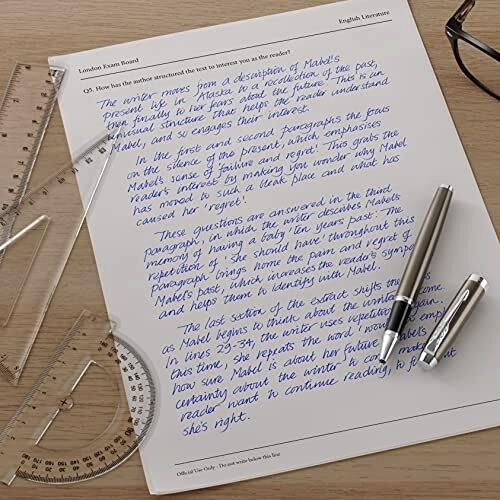 London Exam Board
English Literature
Q5. How has the author structured the text to interest you as the reader?
The writer moves from a description of Mabel's
present life in Alaska to a recollection of the past,
then finally to her fears about the future. This is an
unusual structure that helps the reader understand
Mabel, and so engages their interest.
In the first and second paragraphs the focus
on the silence of the present, which emphasises
Mabel's sense of 'failure and regret'. This grabs the
reader's interest by making you wonder why Mabel
has moved to such a bleak place and what has
caused her 'regret'.
These questions are answered in the third
paragraph, in which the writer describes Mabel's
memory of having a baby 'ten years past'. The
repetition of 'She should have' throughout this
paragraph brings home the pain and regret of
Mabel's past, which increases the reader's sympa
and helps them to identify with Mabel.
The last section of the extract shifts the
as Mabel begins to think about the winter to come.
In lines 29-34, the writer uses repetition again.
this time, she repeats the word 'would' to emp
how sure Mabel is about her future. Mabel's
certainty about the winter to come mak
reader want to continue reading, to find out
she's right.
Official Use Only - Do not write below this line